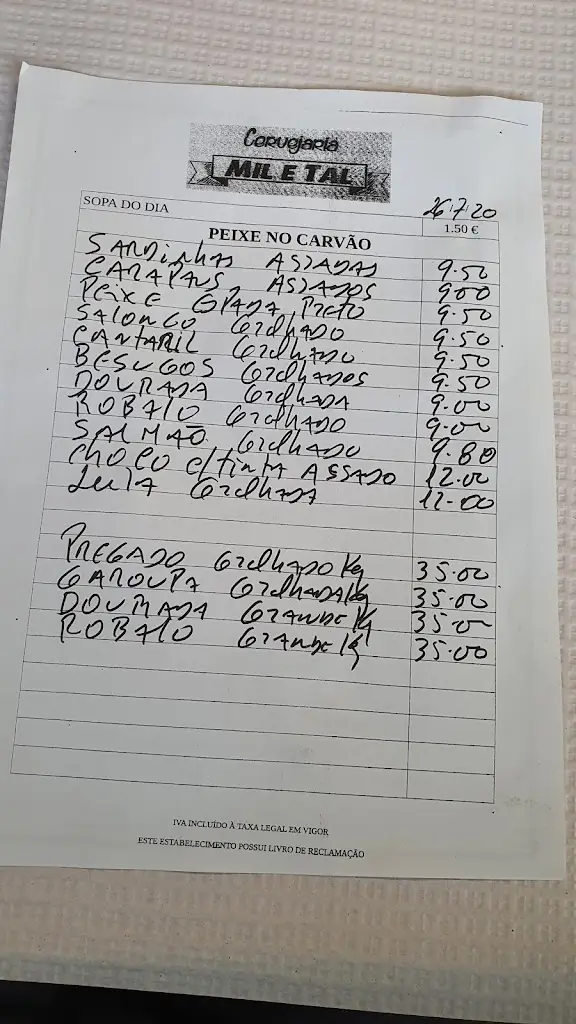 Cervejaria
MIL E TAL
26/7/20
SOPA DO DIA 1.50 €
PEIXE NO CARVÃO
SARDinhAS ASSADAS 9.50
CARAPAUS ASSADOS 9.00
PEIXE ESPADA PRETO 9.50
SALONGO GRELHADO 9.50
CANTARIL GRELHADO 9.50
BESUGOS GRELHADOS 9.50
DOURADA GRELHADA 9.00
ROBALO GRELHADO 9.00
SALMÃO GRELHADO 9.80
CHOCO c/TINTA ASSADO 12.00
LULA GRELHADA 12.00
PREGADO GRELHADO Kg 35.00
GAROUPA GRELHADA Kg 35.00
DOURADA GRANDE Kg 35.00
ROBALO GRANDE Kg 35.00
IVA INCLUÍDO À TAXA LEGAL EM VIGOR
ESTE ESTABELECIMENTO POSSUI LIVRO DE RECLAMAÇÃO